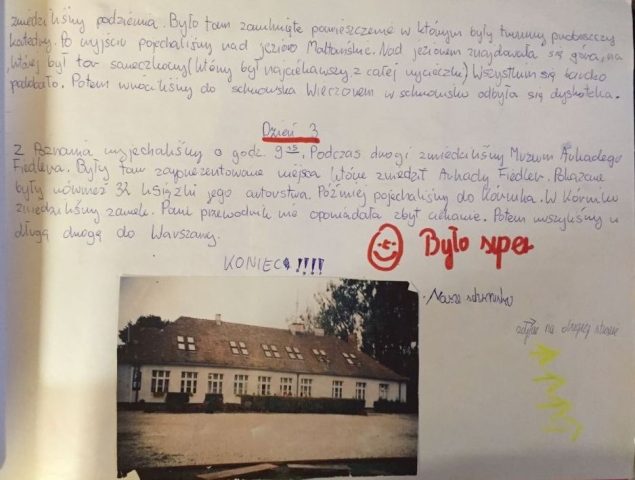 zwiedziliśmy podziemia. Było tam zamknięte pomieszczenie w którym były trumny proboszczy
katedry. Po wyjściu pojechaliśmy nad jezioro Maltańskie. Nad jeziorem znajdowała się góra, na
której był tor saneczkowy (który był najciekawszy z całej wycieczki) Wszystkim się bardzo
podobało. Potem wróciliśmy do schroniska Wieczorem w schronisku odbyła się dyskoteka.
Dzień 3
Z Poznania wyjechaliśmy o godz. 9 15. Podczas drogi zwiedziliśmy Muzeum Arkadego
Fiedlera. Były tam zaprezentowane miejsca które zwiedził Arkady Fiedler. Pokazane
były również 32 książki jego autorstwa. Później pojechaliśmy do Kórnika. W Kórniku
zwiedziliśmy zamek. Pani przewodnik nie opowiadała zbyt ciekawie. Potem ruszyliśmy w
długą drogę do Warszawy.
Było super
KONIEC!!!!
Nasze schronisko
na drugiej stronie